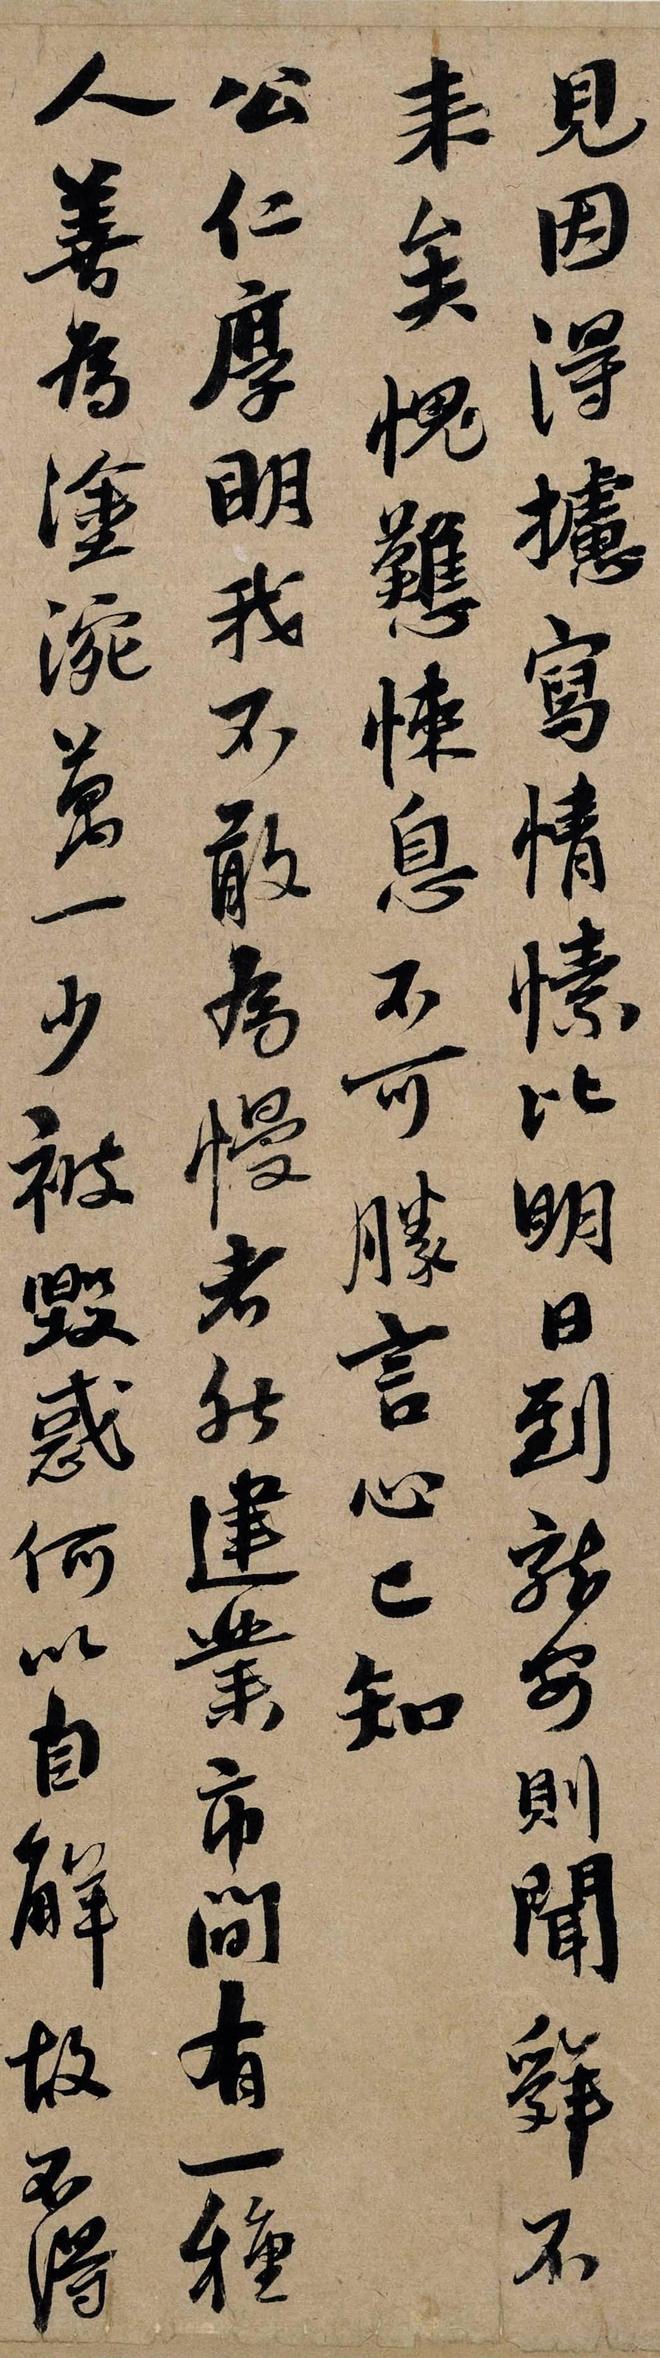 見因得攄寫情愫比明日到龍安則聞舜不
来矣愧戁悚息不可勝言心已知
公仁厚明我不敢為慢者然建業市間有一種
人善為塗涴萬一少被毀惑何以自解故不得